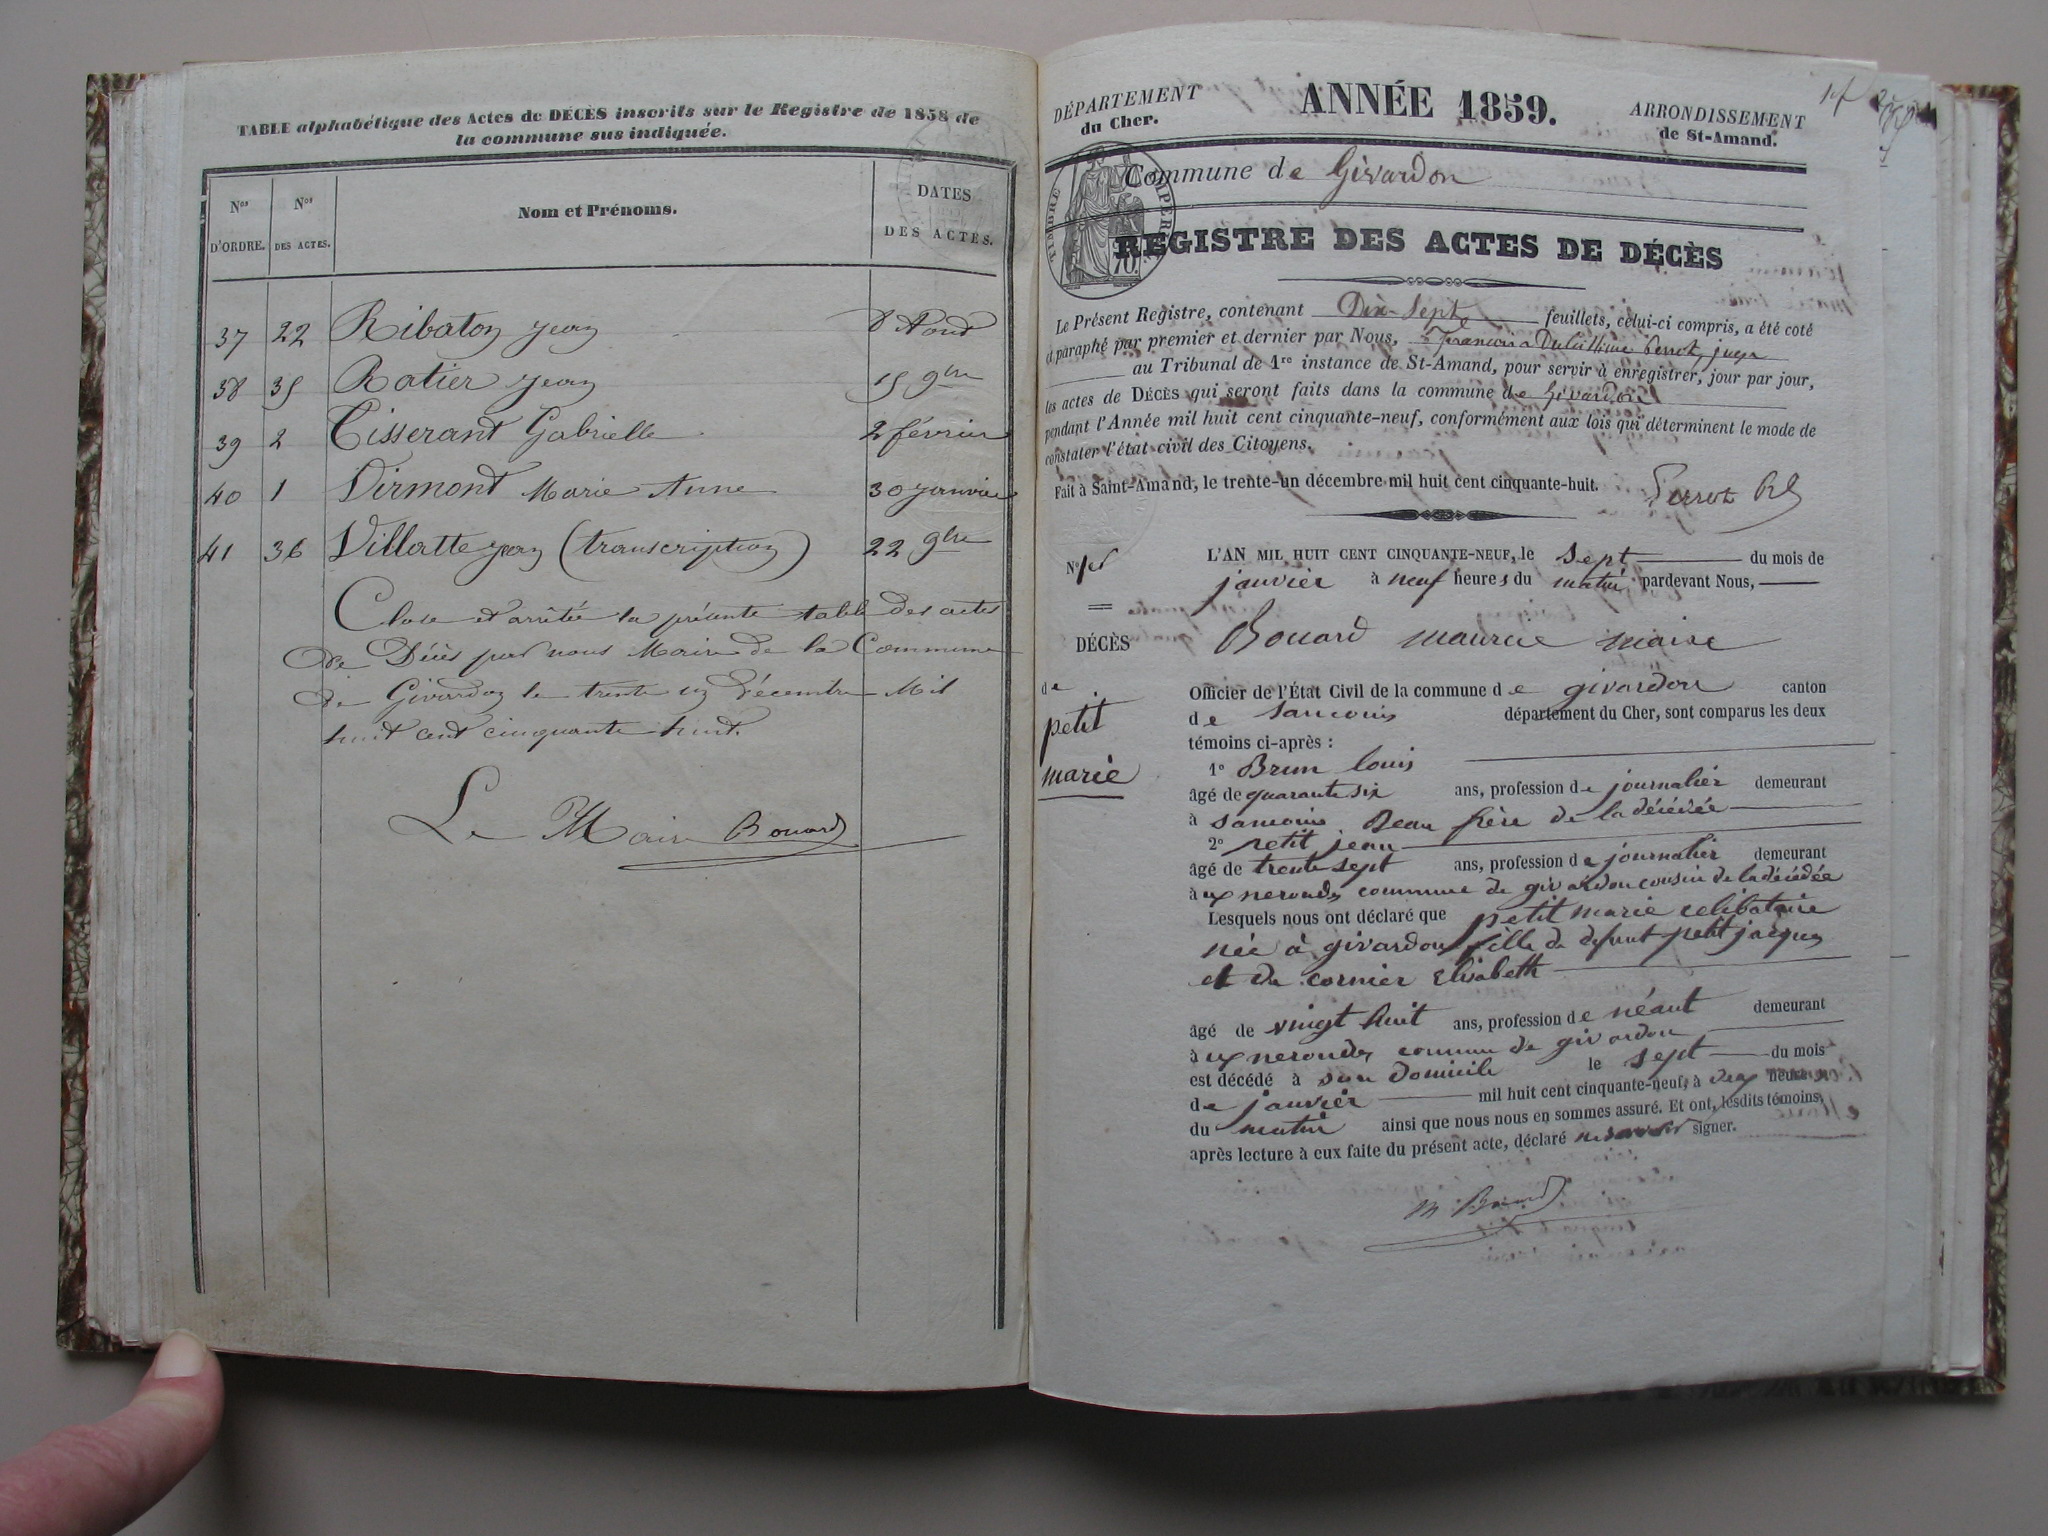 TABLE alphabétique des Actes de DÉCÈS inscrits sur le Registre de 1858 de
la commune sus indiquée.
Nos D'ORDRE. Nos DES ACTES. Nom et Prénoms. DATES DES ACTES.
37 22 Ribaton jean 8 Aout
38 35 Ratier jean 15 9bre
39 2 Tisserant Gabrielle 2 février
40 1 Virmont Marie Anne 30 janvier
41 36 Villatte jean (transcription) 22 9bre
Close et arrêtée la présente table des actes
de Décès par nous Maire de la Commune
de Givardon le trente un Décembre Mil
huit cent cinquante huit.
Le Maire Bouard
DÉPARTEMENT
du Cher.
ANNÉE 1859.
ARRONDISSEMENT
de St-Amand.
Commune de Givardon
TIMBRE IMPÉRIAL
70
REGISTRE DES ACTES DE DÉCÈS
Le Présent Registre, contenant Dix-Sept feuillets, celui-ci compris, a été coté
et paraphé par premier et dernier par Nous, Perrot, juge
au Tribunal de 1re instance de St-Amand, pour servir à enregistrer, jour par jour,
les actes de DÉCÈS qui seront faits dans la commune de Givardon
pendant l'Année mil huit cent cinquante-neuf, conformément aux lois qui déterminent le mode de
constater l'état civil des Citoyens.
Fait à Saint-Amand, le trente-un décembre mil huit cent cinquante-huit.
Perrot
No 1er
L'AN MIL HUIT CENT CINQUANTE-NEUF, le sept du mois de
janvier à neuf heures du matin pardevant Nous,
DÉCÈS
Bouard maurice maire
de
petit
marie
Officier de l'État Civil de la commune de givardon canton
de sancoins département du Cher, sont comparus les deux
témoins ci-après :
1o Brun louis
âgé de quarante six ans, profession de journalier demeurant
à sancoins Beau frère de la décédée
2o petit jean
âgé de trente sept ans, profession de journalier demeurant
à ux nerondes commune de givardon cousin de la décédée
Lesquels nous ont déclaré que petit marie celibataire
née à givardon fille de defunt petit jacques
et de cornier Elisabeth
âgé de vingt huit ans, profession de néant demeurant
à ux nerondes commune de givardon
est décédé à son domicile le sept du mois
de janvier mil huit cent cinquante-neuf, à deux heures
du matin ainsi que nous nous en sommes assuré. Et ont, lesdits témoins,
après lecture à eux faite du présent acte, déclaré ne savoir signer.
M Bouard